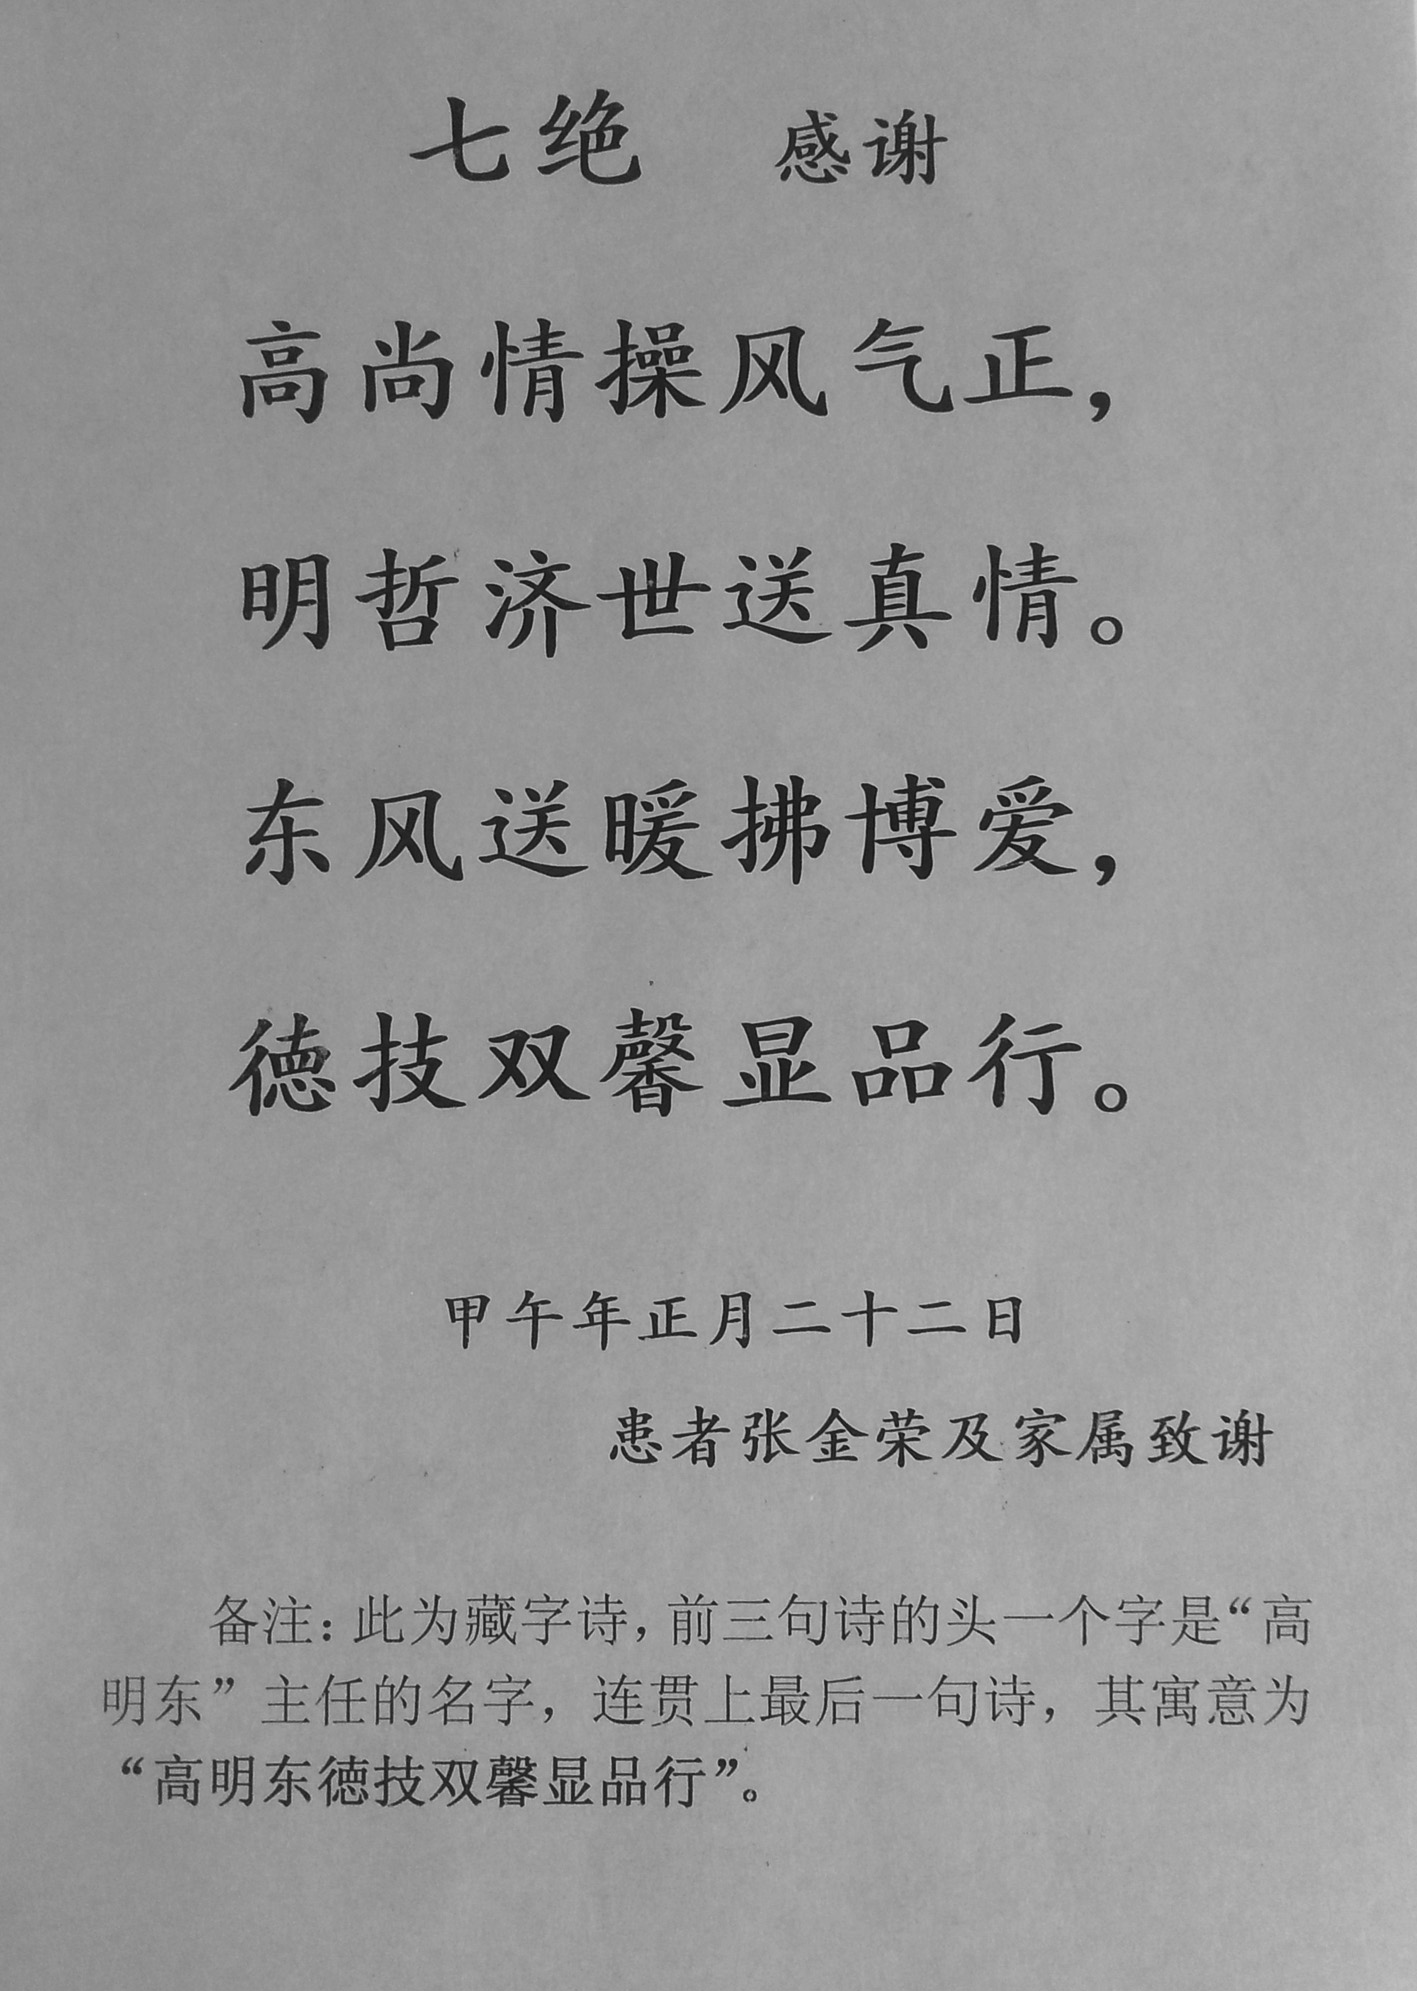 七绝 感谢
高尚情操风气正，
明哲济世送真情。
东风送暖拂博爱，
德技双馨显品行。
甲午年正月二十二日
患者张金荣及家属致谢
备注：此为藏字诗，前三句诗的头一个字是“高
明东”主任的名字，连贯上最后一句诗，其寓意为
“高明东德技双馨显品行”。